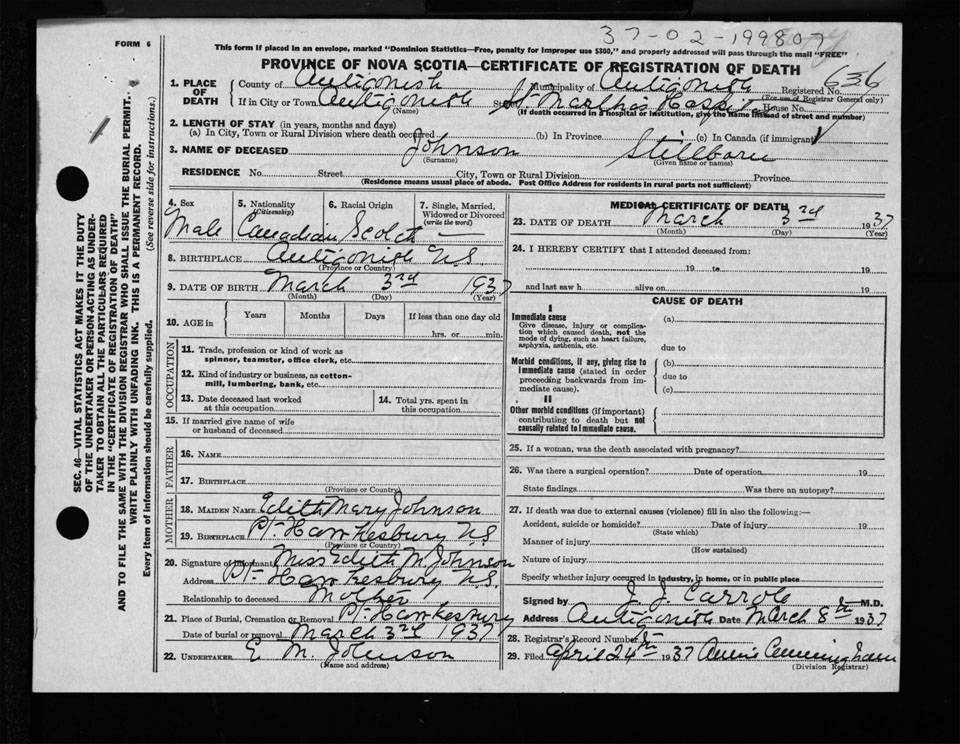 37-02-199807
FORM 6
This form if placed in an envelope, marked "Dominion Statistics—Free, penalty for improper use $300," and properly addressed will pass through the mail "FREE"
PROVINCE OF NOVA SCOTIA—CERTIFICATE OF REGISTRATION OF DEATH
636
1. PLACE OF DEATH County of Antigonish Municipality of Antigonish Registered No.
(For use of Registrar General only)
If in City or Town Antigonish Street St. Martha's Hospital House No.
(Name) (If death occurred in a hospital or institution, give the name instead of street and number)
2. LENGTH OF STAY (in years, months and days)
(a) In City, Town or Rural Division where death occurred (b) In Province (c) In Canada (if immigrant)
3. NAME OF DECEASED Johnson Stillborn
(Surname) (Given name or names)
RESIDENCE No. Street City, Town or Rural Division Province
(Residence means usual place of abode. Post Office Address for residents in rural parts not sufficient)
4. Sex 5. Nationality (Citizenship) 6. Racial Origin 7. Single, Married, Widowed or Divorced (write the word)
Male Canadian Scotch —
8. BIRTHPLACE Antigonish N.S.
(Province or Country)
9. DATE OF BIRTH March 3rd 1937
(Month) (Day) (Year)
10. AGE in Years Months Days If less than one day old
hrs. or min.
OCCUPATION
11. Trade, profession or kind of work as spinner, teamster, office clerk, etc.
12. Kind of industry or business, as cotton-mill, lumbering, bank, etc.
13. Date deceased last worked at this occupation
14. Total yrs. spent in this occupation
15. If married give name of wife or husband of deceased
FATHER
16. NAME
17. BIRTHPLACE
(Province or Country)
MOTHER
18. MAIDEN NAME Edith Mary Johnson
19. BIRTHPLACE Pt. Hawkesbury N.S.
(Province or Country)
20. Signature of informant Miss Edith M. Johnson
Address Pt. Hawkesbury N.S.
Relationship to deceased Mother
21. Place of Burial, Cremation or Removal Pt. Hawkesbury
Date of burial or removal March 3rd 1937
22. UNDERTAKER E. M. Johnson
(Name and address)
MEDICAL CERTIFICATE OF DEATH
23. DATE OF DEATH March 3rd 1937
(Month) (Day) (Year)
24. I HEREBY CERTIFY that I attended deceased from:
19 to 19
and last saw h alive on 19
CAUSE OF DEATH
I
Immediate cause
Give disease, injury or complication which caused death, not the mode of dying, such as heart failure, asphyxia, asthenia, etc.
(a)
due to
Morbid conditions, if any, giving rise to immediate cause (stated in order proceeding backwards from immediate cause).
(b)
due to
(c)
II
Other morbid conditions (if important) contributing to death but not causally related to immediate cause.
25. If a woman, was the death associated with pregnancy?
26. Was there a surgical operation? Date of operation 19
State findings Was there an autopsy?
27. If death was due to external causes (violence) fill in also the following:—
Accident, suicide or homicide? Date of injury 19
(State which)
Manner of injury
(How sustained)
Nature of injury
Specify whether injury occurred in industry, in home, or in public place
Signed by J. J. Carroll M.D.
Address Antigonish Date March 8th 1937
28. Registrar's Record Number
29. Filed April 24th 1937 Annie Cunningham
(Division Registrar)
SEC. 46—VITAL STATISTICS ACT MAKES IT THE DUTY
OF THE UNDERTAKER OR PERSON ACTING AS UNDER-
TAKER TO OBTAIN ALL THE PARTICULARS REQUIRED
IN THE "CERTIFICATE OF REGISTRATION OF DEATH"
AND TO FILE THE SAME WITH THE DIVISION REGISTRAR WHO SHALL ISSUE THE BURIAL PERMIT.
WRITE PLAINLY WITH UNFADING INK. THIS IS A PERMANENT RECORD.
Every item of information should be carefully supplied. (See reverse side for instructions.)